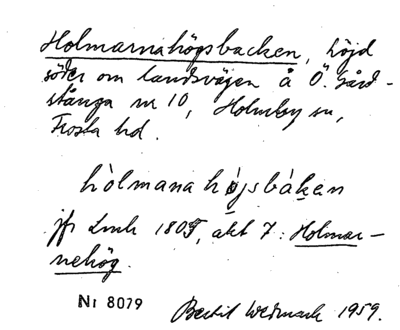 Holmarnahögsbacken, höjd
söder om landsvägen å Ö. Gård-
stånga nr 10, Holmby sn,
Frosta hd.
hòlmana høgsbáken
jfr Lmh 1805, akt 7: Holmar-
nehög.
Nr 8079
Bertil Wedmark 1959.